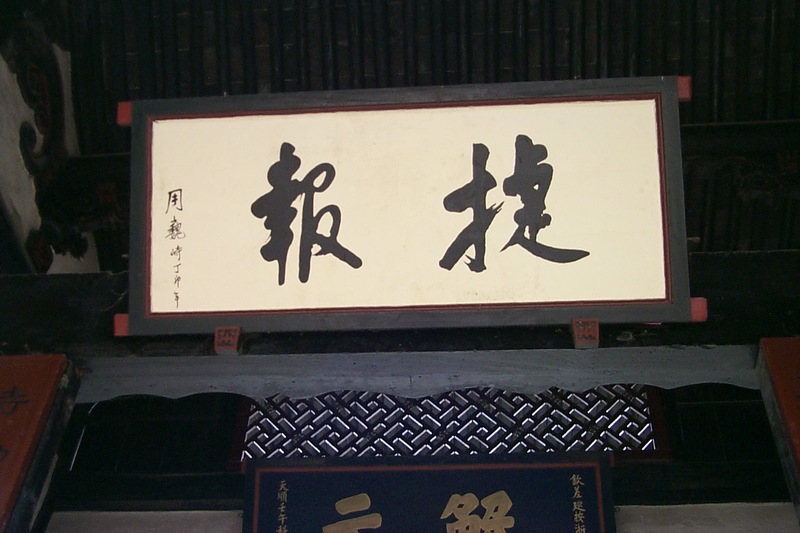 捷報
周巍峙丁卯年
解元
欽差巡按浙
天順壬午